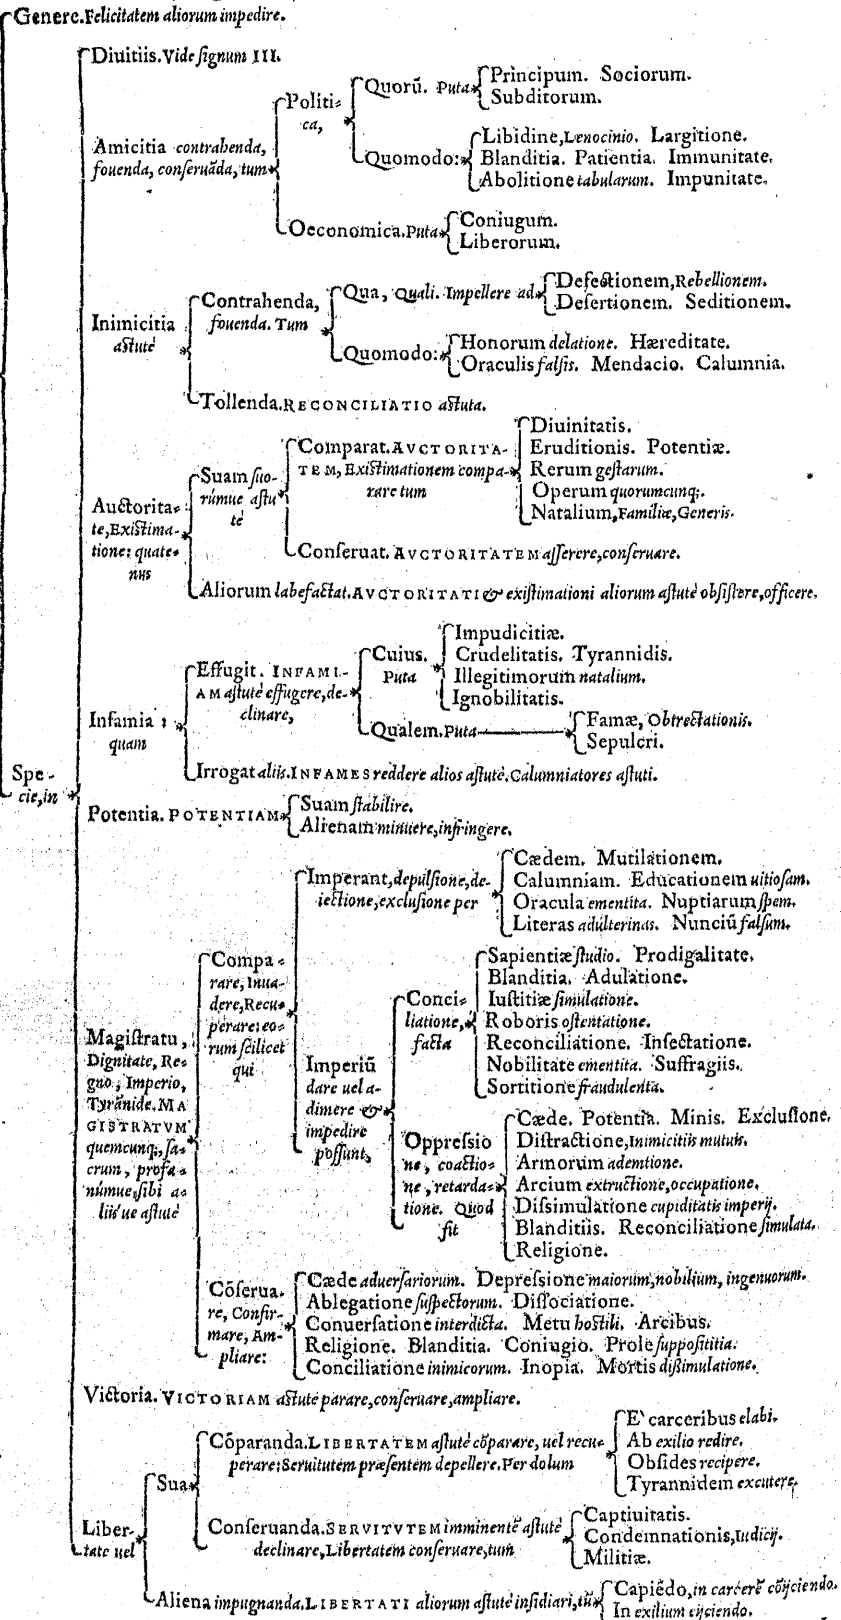 Genere. Felicitatem aliorum impedire.
Diuitiis. Vide signum III.
Amicitia contrahenda,
fouenda, conseruãda, tum
Politi-
ca,
Quorũ. Puta
Principum. Sociorum.
Subditorum.
Quomodo:
Libidine, Lenocinio. Largitione.
Blanditia. Patientia. Immunitate.
Abolitione tabularum. Impunitate.
Oeconomica. Puta
Coniugum.
Liberorum.
Inimicitia
astutè
Contrahenda,
fouenda. Tum
Qua, Quali. Impellere ad
Defectionem, Rebellionem.
Desertionem. Seditionem.
Quomodo:
Honorum delatione. Hæreditate.
Oraculis falsis. Mendacio. Calumnia.
Tollenda. RECONCILIATIO astuta.
Auctorita-
te, Existima-
tione: quate-
nus
Suam suo-
rúmue astu
tè
Comparat. AVCTORITA-
TEM, Existimationem compa-
rare tum
Diuinitatis.
Eruditionis. Potentiæ.
Rerum gestarum.
Operum quorumcunq;.
Natalium, Familiæ, Generis.
Conseruat. AVCTORITATEM asserere, conseruare.
Aliorum labefactat. AVCTORITATI & existimationi aliorum astutè obsistere, officere.
Infamia:
quam
Effugit. INFAMI-
AM astutè effugere, de-
clinare,
Cuius.
Puta
Impudicitiæ.
Crudelitatis. Tyrannidis.
Illegitimorum natalium.
Ignobilitatis.
Qualem. Puta
Famæ, Obtrectationis.
Sepulcri.
Irrogat aliis. INFAMES reddere alios astutè. Calumniatores astuti.
Spe-
cie, in
Potentia. POTENTIAM
Suam stabilire.
Alienam minuere, infringere.
Magistratu,
Dignitate, Re-
gno, Imperio,
Tyrãnide. MA
GISTRATVM
quemcunq;, sa-
crum, profa-
númue, sibi a-
liis'ue astutè
Compa-
rare, Inua-
dere, Recu-
perare: eo-
rum scilicet
qui
Imperant, depulsione, de-
iectione, exclusione per
Cædem. Mutilationem.
Calumniam. Educationem uitiosam.
Oracula ementita. Nuptiarum spem.
Literas adulterinas. Nunciũ falsum.
Imperiũ
dare uel a-
dimere &
impedire
possunt,
Conci-
liatione,
facta
Sapientiæ studio. Prodigalitate.
Blanditia. Adulatione.
Iustitiæ simulatione.
Roboris ostentatione.
Reconciliatione. Insectatione.
Nobilitate ementita. Suffragiis.
Sortitione fraudulenta.
Oppressio
ne, coactio-
ne, retarda-
tione. Quod
fit
Cæde. Potentia. Minis. Exclusione.
Distractione, Inimicitiis mutuis.
Armorum ademtione.
Arcium extructione, occupatione.
Dissimulatione cupiditatis imperij.
Blanditiis. Reconciliatione simulata.
Religione.
Cõserua-
re, Confir-
mare, Am-
pliare:
Cæde aduersariorum. Depressione maiorum, nobilium, ingenuorum.
Ablegatione suspectorum. Dissociatione.
Conuersatione interdicta. Metu hostili. Arcibus.
Religione. Blanditia. Coniugio. Prole supposititia.
Conciliatione inimicorum. Inopia. Mortis dissimulatione.
Victoria. VICTORIAM astutè parare, conseruare, ampliare.
Liber-
tate uel
Sua
Cõparanda. LIBERTATEM astutè cõparare, uel recu-
perare: Seruitutem præsentem depellere. Per dolum
E' carceribus elabi.
Ab exilio redire.
Obsides recipere.
Tyrannidem excutere.
Conseruanda. SERVITVTEM imminentẽ astutè
declinare, Libertatem conseruare, tum
Captiuitatis.
Condemnationis, Iudicij.
Militiæ.
Aliena impugnanda. LIBERTATI aliorum astutè insidiari, tũ
Capiẽdo, in carcerẽ cõijciendo.
In exilium eijciendo.